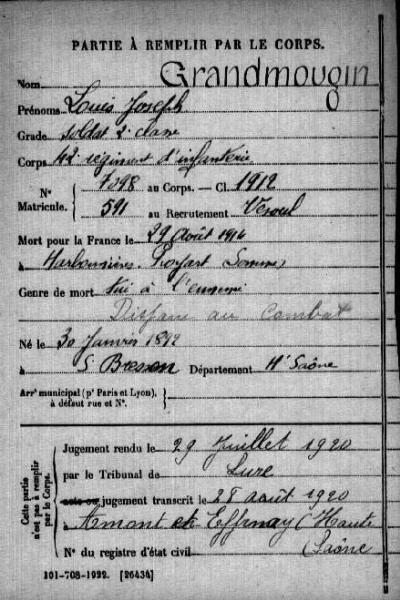 PARTIE À REMPLIR PAR LE CORPS.
Nom Grandmougin
Prénoms Louis Joseph
Grade Soldat 2e classe
Corps 42e régiment d'infanterie
N° Matricule. 7098 au Corps. — Cl. 1912
591 au Recrutement Vesoul
Mort pour la France le 29 Août 1914
à Harbonnières Proyart Somme
Genre de mort tué à l'ennemi
Disparu au Combat
Né le 30 Janvier 1892
à St Bresson Département Hte Saône
Arrt municipal (pr Paris et Lyon), à défaut rue et N°.
Cette partie n'est pas à remplir par le Corps.
Jugement rendu le 29 Juillet 1920
par le Tribunal de Lure
acte ou jugement transcrit le 28 août 1920
à Amont et Effrenay (Haute
N° du registre d'état civil Saône
101-708-1922. [26434]